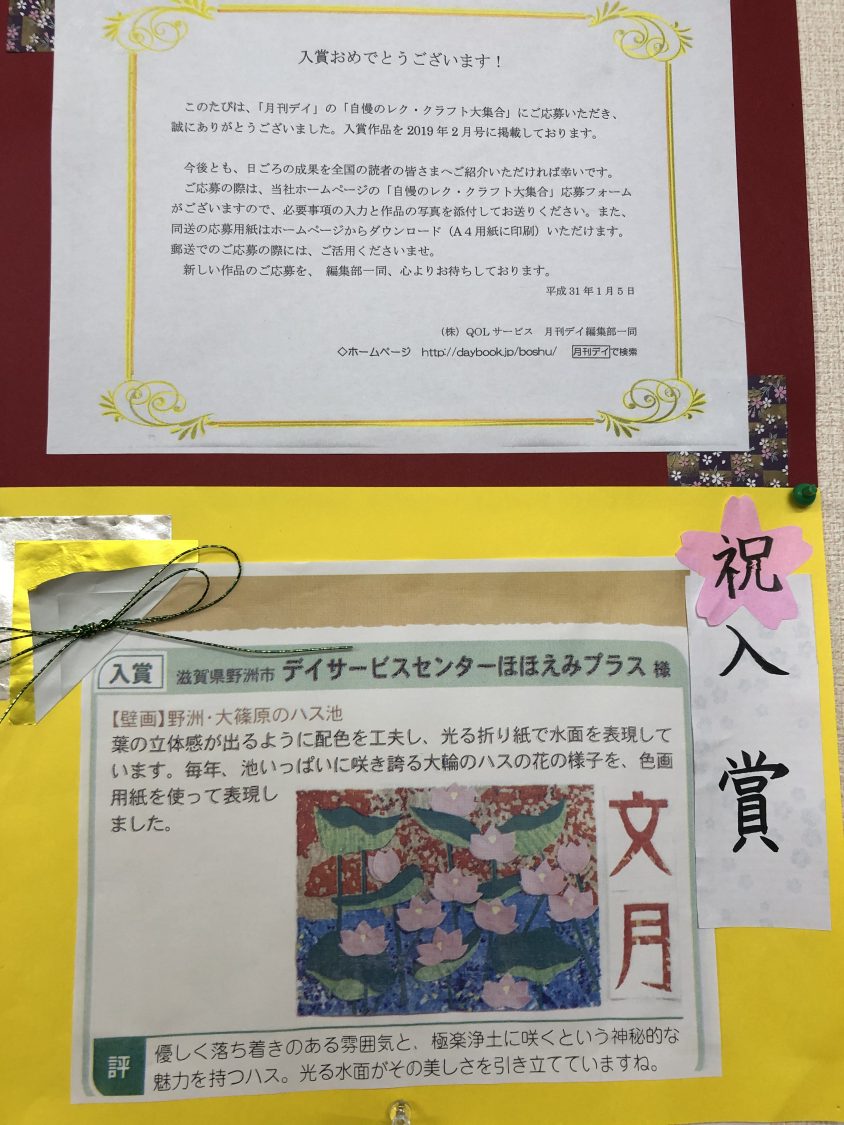 入賞おめでとうございます!
このたびは、「月刊デイ」の「自慢のレク・クラフト大集合」にご応募いただき、
誠にありがとうございました。入賞作品を2019年2月号に掲載しております。
今後とも、日ごろの成果を全国の読者の皆さまへご紹介いただければ幸いです。
ご応募の際は、当社ホームページの「自慢のレク・クラフト大集合」応募フォーム
がございますので、必要事項の入力と作品の写真を添付してお送りください。また、
同送の応募用紙はホームページからダウンロード（A4用紙に印刷）いただけます。
郵送でのご応募の際には、ご活用くださいませ。
新しい作品のご応募を、 編集部一同、心よりお待ちしております。
平成31年1月5日
（株）QOLサービス 月刊デイ編集部一同
◇ホームページ http://daybook.jp/boshu/ 月刊デイで検索
祝
入
賞
入賞 滋賀県野洲市 デイサービスセンターほほえみプラス 様
【壁画】野洲・大篠原のハス池
葉の立体感が出るように配色を工夫し、光る折り紙で水面を表現して
います。毎年、池いっぱいに咲き誇る大輪のハスの花の様子を、色画
用紙を使って表現し
ました。
文
月
評
優しく落ち着きのある雰囲気と、極楽浄土に咲くという神秘的な
魅力を持つハス。光る水面がその美しさを引き立てていますね。